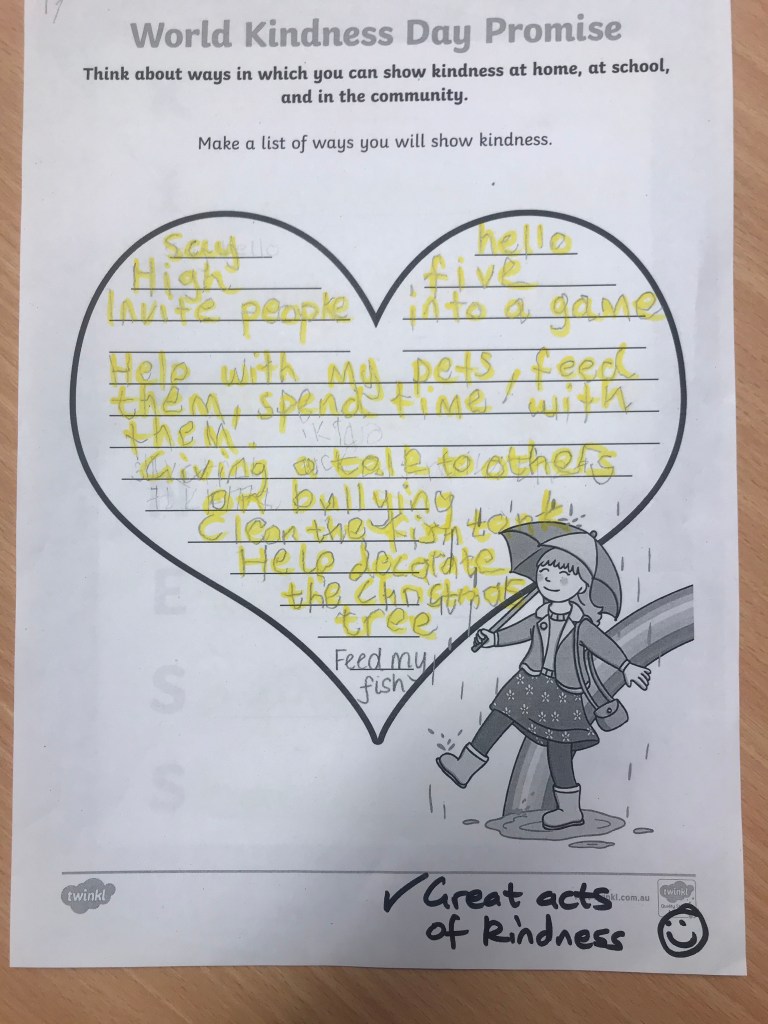 World Kindness Day Promise
Think about ways in which you can show kindness at home, at school,
and in the community.
Make a list of ways you will show kindness.
Say hello
High five
Invite people into a game
Help with my pets, feed
them, spend time with
them.
Giving a talk to others
on bullying
Clean the fish tank
Help decorate
the Christmas
tree
Feed my
fish
twinkl
✓ Great acts
of kindness
nkl.com.au
twinkl